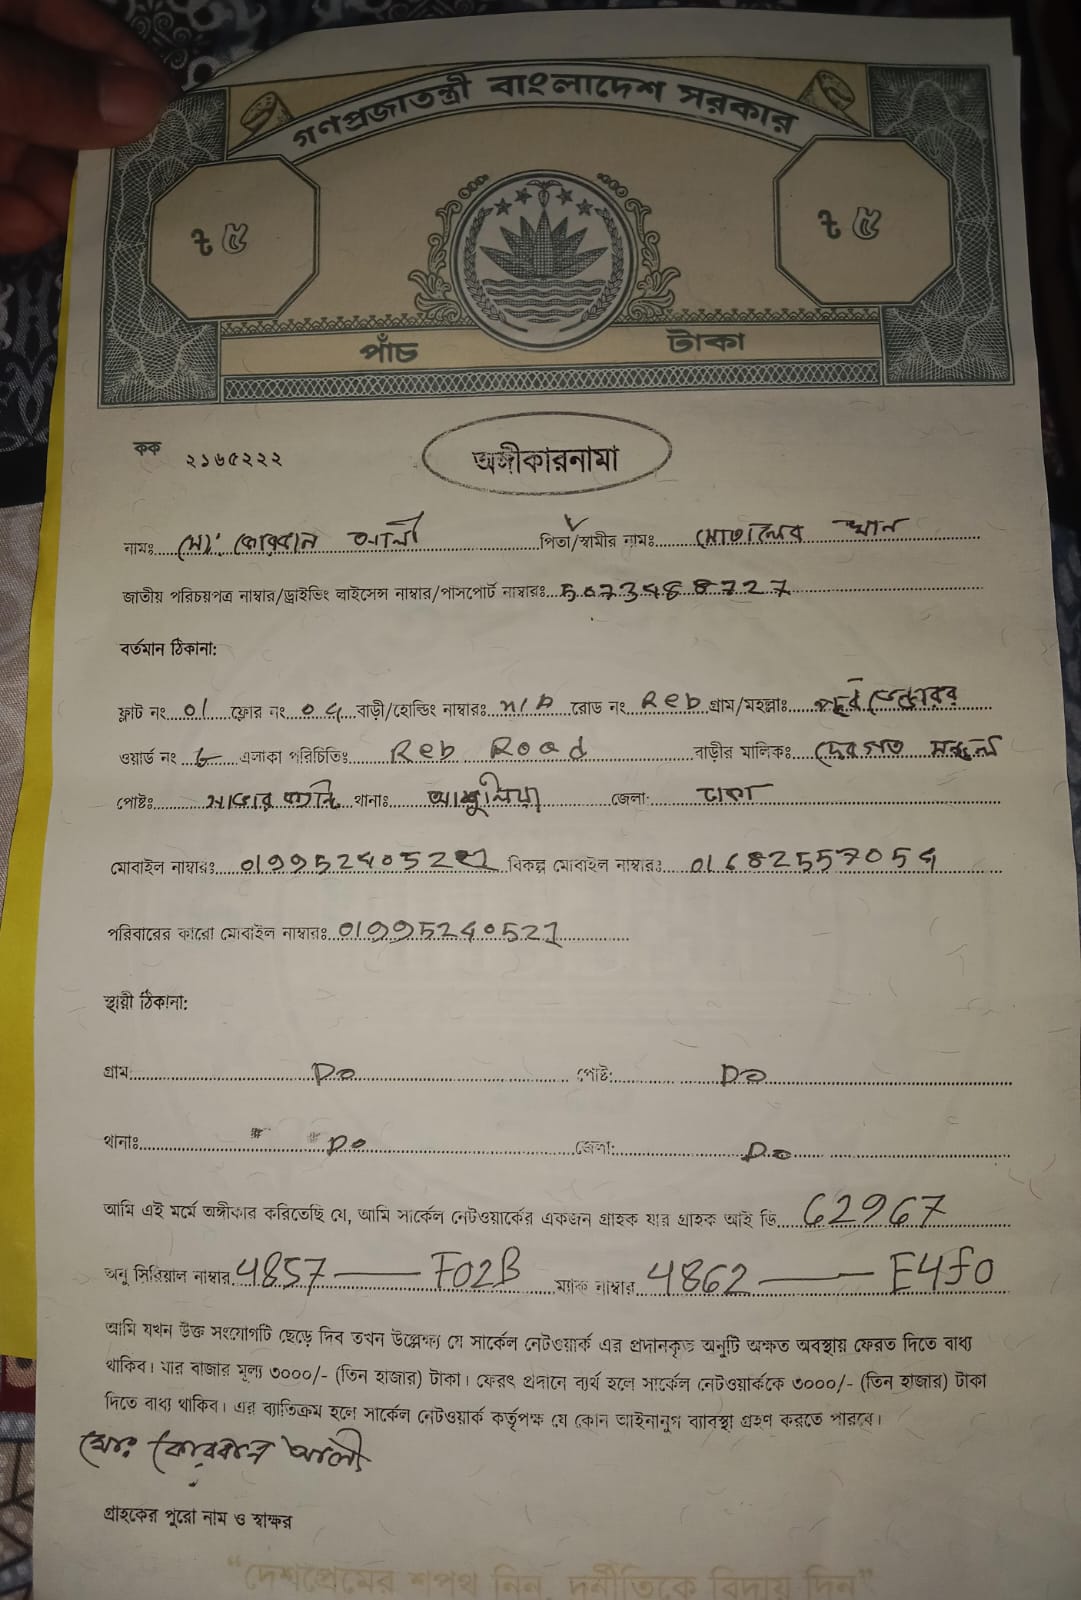 গণপ্রজাতন্ত্রী বাংলাদেশ সরকার
৳ ৫ ৳ ৫
পাঁচ টাকা
কক ২১৬৫২২২
অঙ্গীকারনামা
নামঃ মোঃ কোরবান আলী পিতা/স্বামীর নামঃ মোতালেব খান
জাতীয় পরিচয়পত্র নাম্বার/ড্রাইভিং লাইসেন্স নাম্বার/পাসপোর্ট নাম্বারঃ
বর্তমান ঠিকানা:
ফ্লাট নং 01 ফ্লোর নং 04 বাড়ী/হোল্ডিং নাম্বারঃ N/A রোড নং Reb গ্রাম/মহল্লাঃ
ওয়ার্ড নং এলাকা পরিচিতিঃ Reb Road বাড়ীর মালিকঃ
পোষ্টঃ থানাঃ আশুলিয়া জেলা: ঢাকা
মোবাইল নাম্বারঃ বিকল্প মোবাইল নাম্বারঃ 01682557054
পরিবারের কারো মোবাইল নাম্বারঃ 01995240521
স্থায়ী ঠিকানা:
গ্রাম: Do পোষ্ট: Do
থানাঃ Do জেলা: Do
আমি এই মর্মে অঙ্গীকার করিতেছি যে, আমি সার্কেল নেটওয়ার্কের একজন গ্রাহক যার গ্রাহক আই ডি 62967
অনু সিরিয়াল নাম্বার 4857 — F02B ম্যাক নাম্বার 4862 — E4f0
আমি যখন উক্ত সংযোগটি ছেড়ে দিব তখন উল্লেক্ষ্য যে সার্কেল নেটওয়ার্ক এর প্রদানকৃত অনুটি অক্ষত অবস্থায় ফেরত দিতে বাধ্য
থাকিব। যার বাজার মূল্য ৩০০০/- (তিন হাজার) টাকা। ফেরৎ প্রদানে ব্যর্থ হলে সার্কেল নেটওয়ার্ককে ৩০০০/- (তিন হাজার) টাকা
দিতে বাধ্য থাকিব। এর ব্যাতিক্রম হলে সার্কেল নেটওয়ার্ক কর্তৃপক্ষ যে কোন আইনানুগ ব্যাবস্থা গ্রহণ করতে পারবে।
মোঃ কোরবান আলী
গ্রাহকের পুরো নাম ও স্বাক্ষর
“দেশপ্রেমের শপথ নিন, দুর্নীতিকে বিদায় দিন”